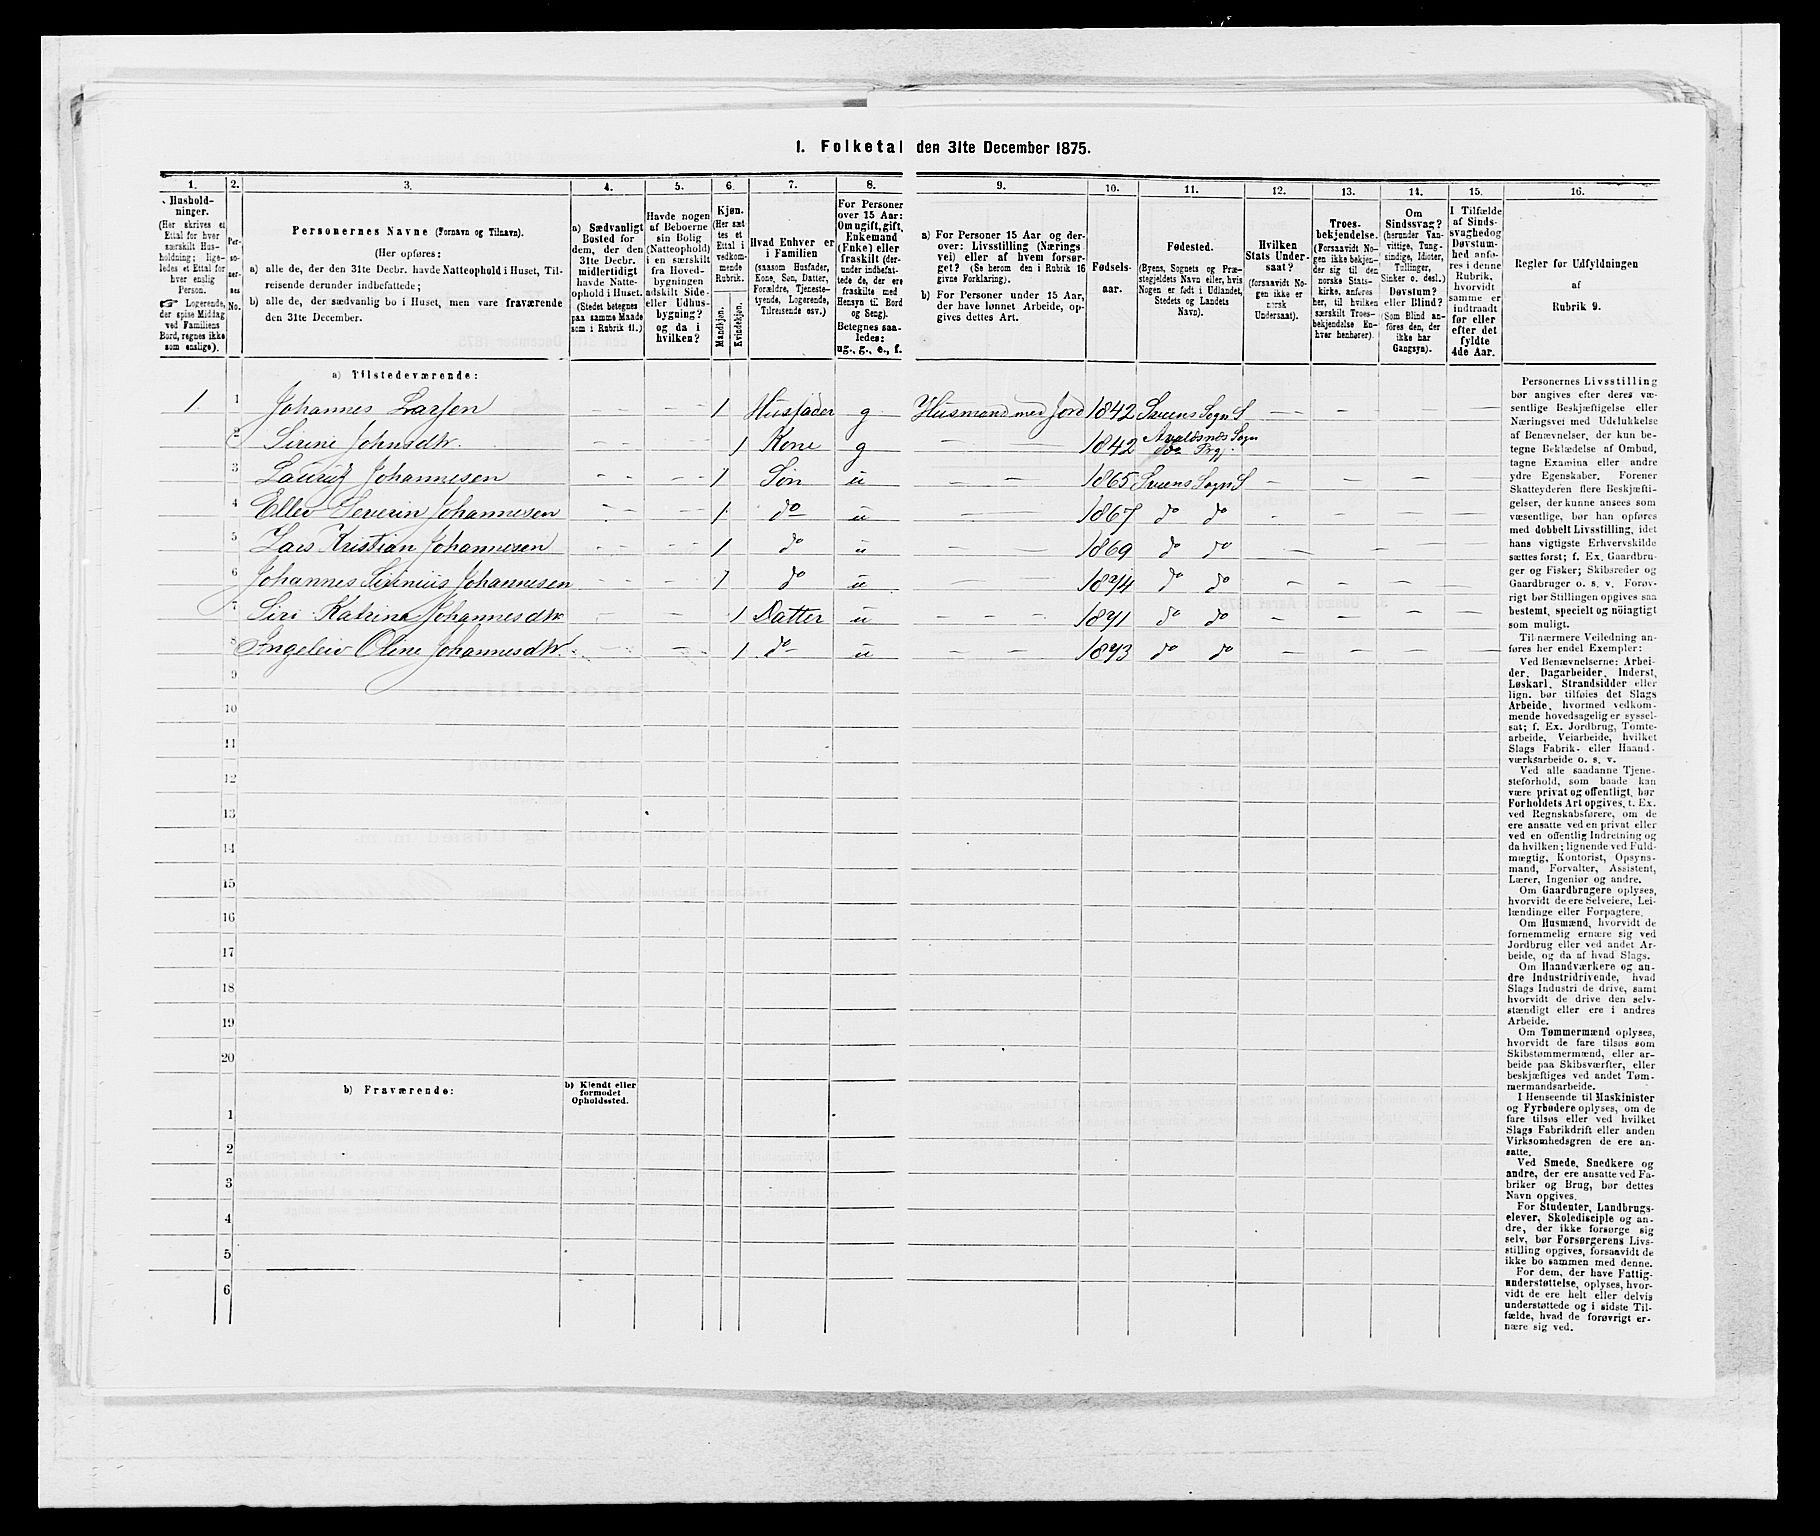 1. Folketal den 31te December 1875.
1. 2. 3. 4. 5. 6. 7. 8. 9. 10. 11. 12. 13. 14. 15. 16.
Hushold-
ninger.
(Her skrives et
Ettal for hver
særskilt Hus-
holdning; lige-
ledes et Ettal for
hver enslig
Person.
☞ Logerende,
der spise Middag
ved Familiens
Bord, regnes ikke
som enslige).
Per-
so-
ner-
nes
No.
Personernes Navne (Fornavn og Tilnavn).
(Her opføres:
a) alle de, der den 31te Decbr. havde Natteophold i Huset, Til-
reisende derunder indbefattede;
b) alle de, der sædvanlig bo i Huset, men vare fraværende
den 31te December.
a) Sædvanligt
Bosted for
dem, der den
31te Decbr.
midlertidigt
havde Natte-
ophold i Huset.
(Stedet betegnes
paa samme Maade
som i Rubrik 11.)
Havde nogen
af Beboerne
sin Bolig
(Natteophold)
i en særskilt
fra Hoved-
bygningen
adskilt Side-
eller Udhus-
bygning?
og da i
hvilken?
Kjøn.
(Her sæt-
tes et
Ettal i
vedkom-
mende
Rubrik.
Mandkjøn.
Kvindekjøn.
Hvad Enhver er
i Familien
(saasom Husfader,
Kone, Søn, Datter,
Forældre, Tjeneste-
tyende, Logerende,
Tilreisende osv.)
For Personer
over 15 Aar:
Om ugift, gift,
Enkemand
(Enke) eller
fraskilt (der-
under indbefat-
tede de, der ere
fraskilte med
Hensyn til Bord
og Seng).
Betegnes saa-
ledes:
ug., g., e., f.
a) For Personer 15 Aar og der-
over: Livsstilling (Nærings-
vei) eller af hvem forsør-
get? (Se herom den i Rubrik 16
givne Forklaring).
b) For Personer under 15 Aar,
der have lønnet Arbeide, op-
gives dettes Art.
Fødsels-
aar.
Fødested.
(Byens, Sognets og Præ-
stegjeldets Navn eller, hvis
Nogen er født i Udlandet,
Stedets og Landets
Navn).
Hvilken
Stats Under-
saat?
(forsaavidt No-
gen ikke er
norsk
Undersaat).
Troes-
bekjendelse.
(Forsaavidt No-
gen ikke bekjen-
der sig til den
norske Stats-
kirke, anføres
her, til hvilken
særskilt Troes-
bekjendelse En-
hver henhører).
Om
Sindssvag?
(herunder Van-
vittige, Tung-
sindige, Idioter,
Tullinger,
Sinker o. desl.)
Døvstum?
eller Blind?
(Som Blind an-
føres den, der
ikke har
Gangsyn).
I Tilfælde
af Sinds-
svaghed og
Døvstum-
hed anfø-
res i denne
Rubrik,
hvorvidt
samme er
indtraadt
før eller
efter det
fyldte
4de Aar.
Regler for Udfyldningen
af
Rubrik 9.
a) Tilstedeværende:
1. 1 Johannes Larsen 1 Husfader g Husmand med Jord 1842 Sveens Sogn S
2 Sirine Johnsdtr. 1 Kone g 1842 Avaldsnes Sogn
do Prgj.
3 Lauritz Johannesen 1 Søn u 1865 Sveens Sogn S
4 Ellev Severin Johannesen 1 do u 1867 do do
5 Lars Kristian Johannesen 1 do u 1869 do do
6 Johannes Sirinius Johannesen 1 do u 1874 do do
7 Siri Katrine Johannesdtr 1 Datter u 1871 do do
8 Ingeleiv Oline Johannesdtr. 1 do u 1873 do do
9
10
11
12
13
14
15
16
17
18
19
20
b) Fraværende:
b) Kjendt eller
formodet
Opholdssted.
1
2
3
4
5
6
Personernes Livsstilling
bør angives efter deres væ-
sentlige Beskjæftigelse eller
Næringsvei med Udelukkelse
af Benævnelser, der kun be-
tegne Beklædelse af Ombud,
tagne Examina eller andre
ydre Egenskaber. Forener
Skatteyderen flere Beskjæfti-
gelser, der kunne ansees som
væsentlige, bør han opføres
med dobbelt Livsstilling, idet
hans vigtigste Erhvervskilde
sættes først; f. Ex. Gaardbru-
ger og Fisker; Skibsreder og
Gaardbruger o. s. v. Forøv-
rigt bør Stillingen opgives saa
bestemt, specielt og nöiagtigt
som muligt.
Til nærmere Veiledning an-
føres her endel Exempler:
Ved Benævnelserne: Arbei-
der, Dagarbeider, Inderst,
Løskarl, Strandsidder eller
lign. bør tilføies det Slags
Arbeide, hvormed vedkom-
mende hovedsagelig er syssel-
sat; f. Ex. Jordbrug, Tomte-
arbeide, Veiarbeide, hvilket
Slags Fabrik- eller Haand-
værksarbeide o. s. v.
Ved alle saadanne Tjene-
steforhold, som baade kan
være privat og offentligt, bør
Forholdets Art opgives, t. Ex.
ved Regnskabsførere, om de
ere ansatte ved en privat eller
ved en offentlig Indretning og
da hvilken; lignende ved Fuld-
mægtig, Kontorist, Opsyns-
mand, Forvalter, Assistent,
Lærer, Ingeniør og andre.
Om Gaardbrugere oplyses,
hvorvidt de ere Selveiere, Lei-
lændinge eller Forpagtere.
Om Husmænd, hvorvidt de
fornemmelig ernære sig ved
Jordbrug eller ved andet Ar-
beide, og da af hvad Slags.
Om Haandværkere og an-
dre Industridrivende, hvad
Slags Industri de drive, samt
hvorvidt de drive den selv-
stændigt eller ere i andres
Arbeide.
Om Tømmermænd oplyses,
hvorvidt de fare tilsøs som
Skibstømmermænd, eller ar-
beide paa Skibsværfter, eller
beskjæftiges ved andet Tøm-
mermandsarbeide.
I Henseende til Maskinister
og Fyrbødere oplyses, om de
fare tilsøs eller ved hvilket
Slags Fabrikdrift eller anden
Virksomhedsgren de ere an-
satte.
Ved Smede, Snedkere og
andre, der ere ansatte ved Fa-
briker og Brug, bør dettes
Navn opgives.
For Studenter, Landbrugs-
elever, Skoledisciple og an-
dre, der ikke forsørge sig
selv, bør Forsørgerens Livs-
stilling opgives, forsaavidt de
ikke bo sammen med denne.
For dem, der have Fattig-
understøttelse, oplyses, hvor-
vidt de ere helt eller delvis
understøttede og i sidste Til-
fælde, hvad de forøvrigt er-
nære sig ved.